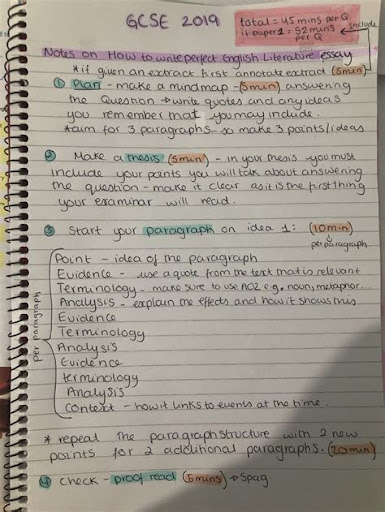 GCSE 2019
total = 45 mins per Q
if paper 1 = 52 mins
per Q
include
Notes on How to write perfect English Literature essay
*if given an extract first annotate extract (5min)
① Plan - make a mindmap - (5min) answering
the Question → write quotes and any ideas
you remember that you may include.
*aim for 3 paragraphs so make 3 points/ideas
② Make a thesis (5min) - in your thesis you must
include your points you will talk about answering
the question - make it clear as it is the first thing
your examinar will read.
③ Start your paragraph on idea 1: (10min)
per paragraph
per paragraph
Point - idea of the paragraph
Evidence - use a quote from the text that is relevant
Terminology - make sure to use AO2 e.g. noun, metaphor...
Analysis - explain the effects and how it shows this
Evidence
Terminology
Analysis
Evidence
terminology
Analysis
Context - how it links to events at the time.
* repeat the paragraph structure with 2 new
points for 2 additional paragraphs. (20min)
④ Check - proof read (5mins) → Spag